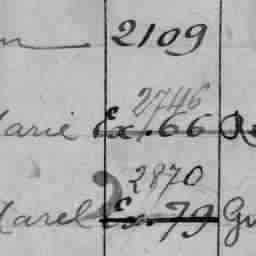 2109
2746
arie Ex. 66
2870
Karel Ex. 79 Gu